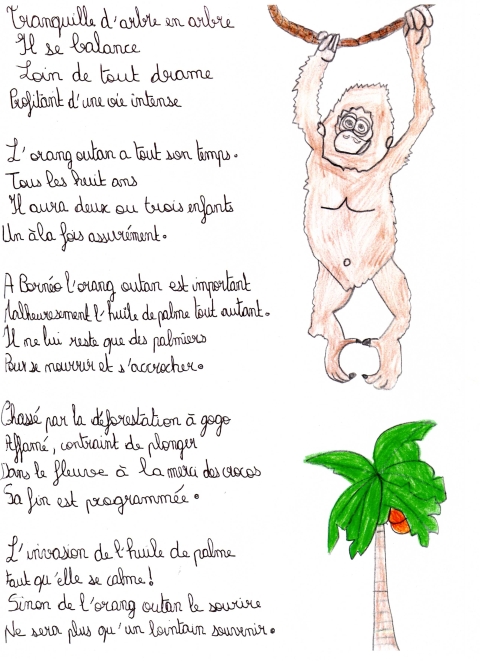 Tranquille d'arbre en arbre
Il se balance
Loin de tout drame
Profitant d'une vie intense
L'orang outan a tout son temps.
Tous les huit ans
Il aura deux ou trois enfants
Un à la fois assurément.
A Bornéo l'orang outan est important
Malheureusement l'huile de palme tout autant.
Il ne lui reste que des palmiers
Pour se nourrir et s'accrocher.
Chassé par la déforestation à gogo
Affamé, contraint de plonger
Dans le fleuve à la merci des crocos
Sa fin est programmée.
L'invasion de l'huile de palme
Faut qu'elle se calme !
Sinon de l'orang outan le sourire
Ne sera plus qu'un lointain souvenir.